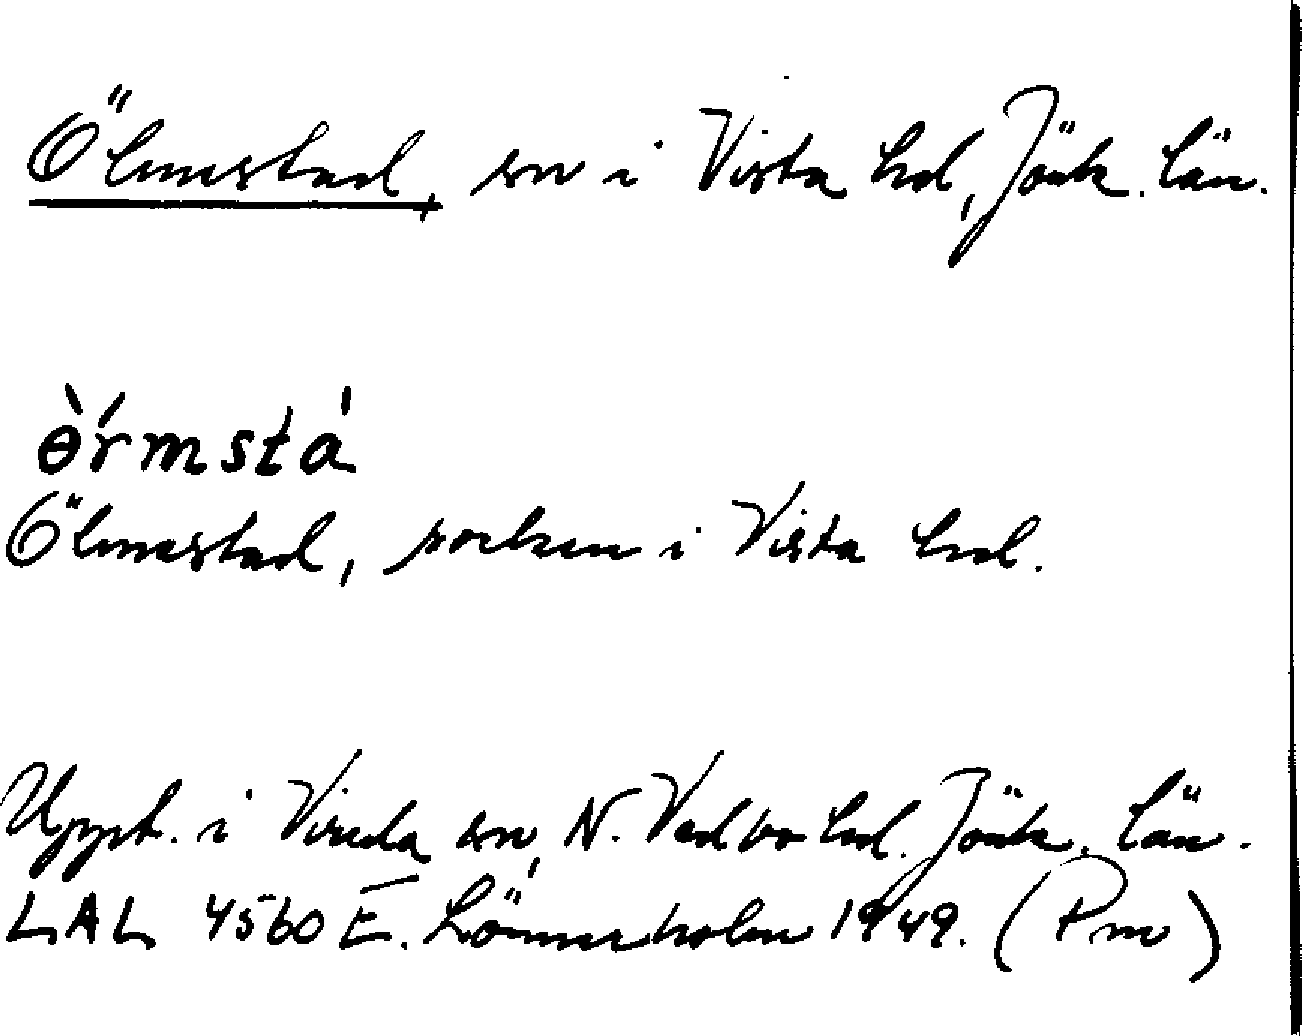 Ölmstad, sn i Vista hd, Jönk. län.
ɵ̀ŕmstá
Ölmestad, socken i Vista hd.
Uppt. i Vireda sn, N. Vedbo hd. Jönk. län.
LAL 4560 E. Lönnerholm 1949. (Pm)